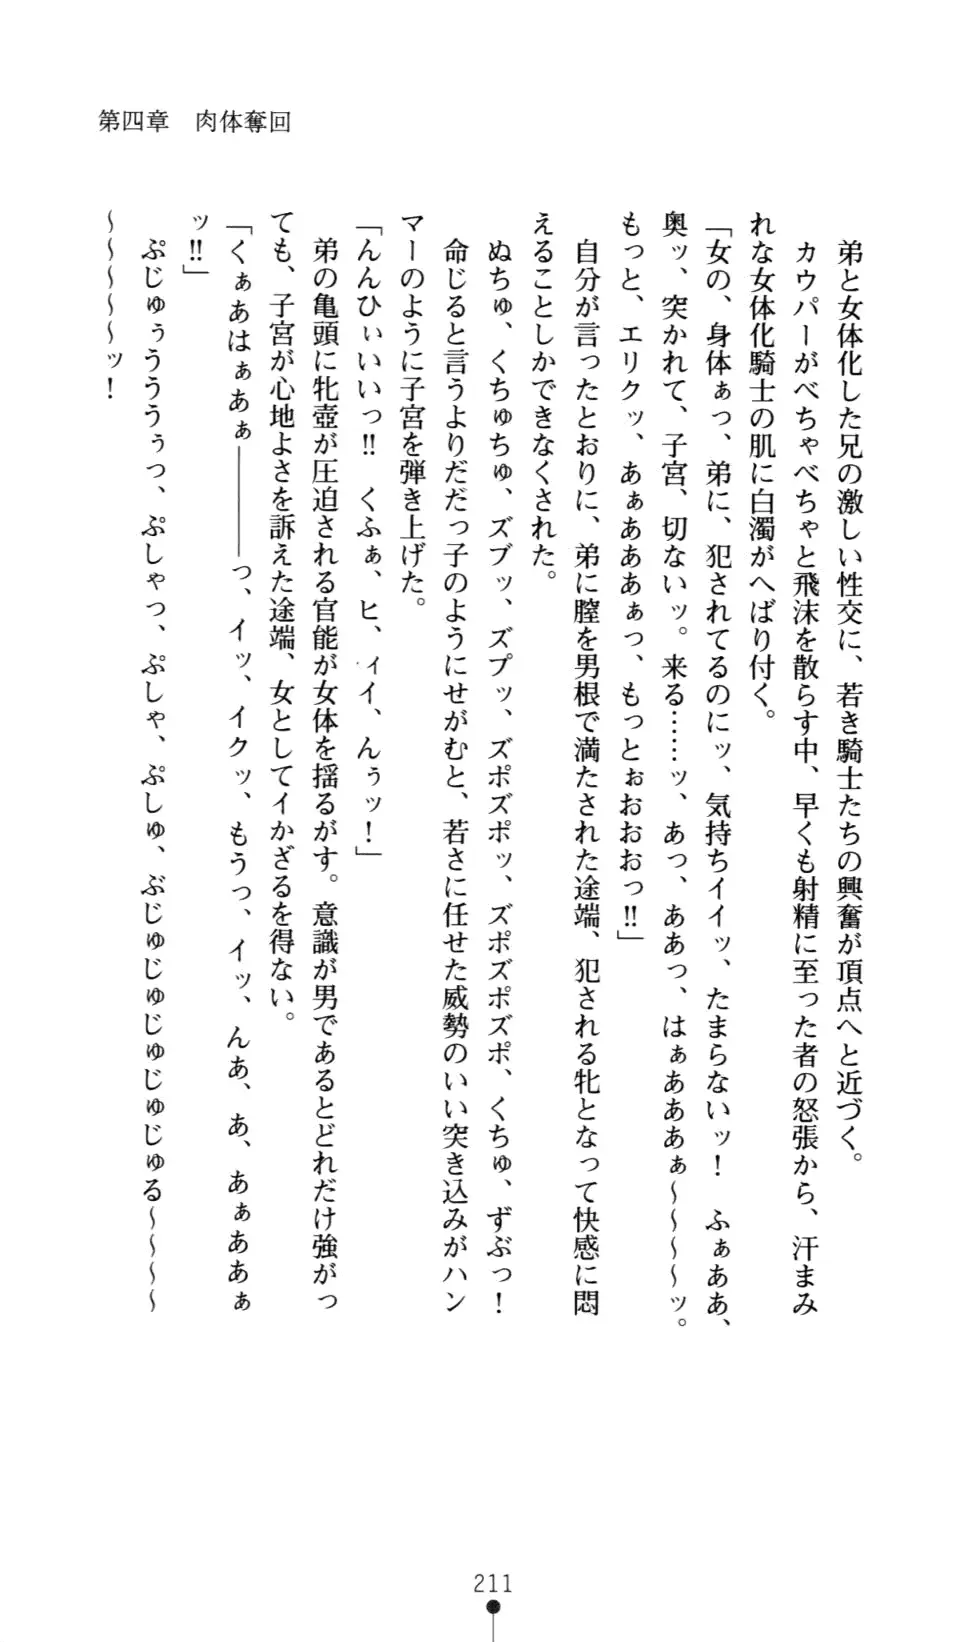 第四章　肉体奪回
弟と女体化した兄の激しい性交に、若き騎士たちの興奮が頂点へと近づく。
カウパーがべちゃべちゃと飛沫を散らす中、早くも射精に至った者の怒張から、汗まみ
れな女体化騎士の肌に白濁がへばり付く。
「女の、身体ぁっ、弟に、犯されてるのにッ、気持ちイイッ、たまらないッ！　ふぁああ、
奥ッ、突かれて、子宮、切ないッ。来る……ッ、あっ、ああっ、はぁあああぁ～～～～ッ。
もっと、エリクッ、あぁあああぁっ、もっとぉおおおっ‼」
自分が言ったとおりに、弟に膣を男根で満たされた途端、犯される牝となって快感に悶
えることしかできなくされた。
ぬちゅ、くちゅちゅ、ズブッ、ズプッ、ズポズポッ、ズポズポズポ、くちゅ、ずぶっ！
命じると言うよりだだっ子のようにせがむと、若さに任せた威勢のいい突き込みがハン
マーのように子宮を弾き上げた。
「んんひぃいいっ‼　くふぁ、ヒ、ィイ、んぅッ！」
弟の亀頭に牝壺が圧迫される官能が女体を揺るがす。意識が男であるとどれだけ強がっ
ても、子宮が心地よさを訴えた途端、女としてイかざるを得ない。
「くぁあはぁあぁ――――っ、イッ、イクッ、もうっ、イッ、んあ、あ、あぁああぁ
ッ‼」
ぷじゅぅうううぅっ、ぷしゃっ、ぷしゃ、ぷしゅ、ぶじゅじゅじゅじゅじゅる～～～～
～～～～～ッ！
211